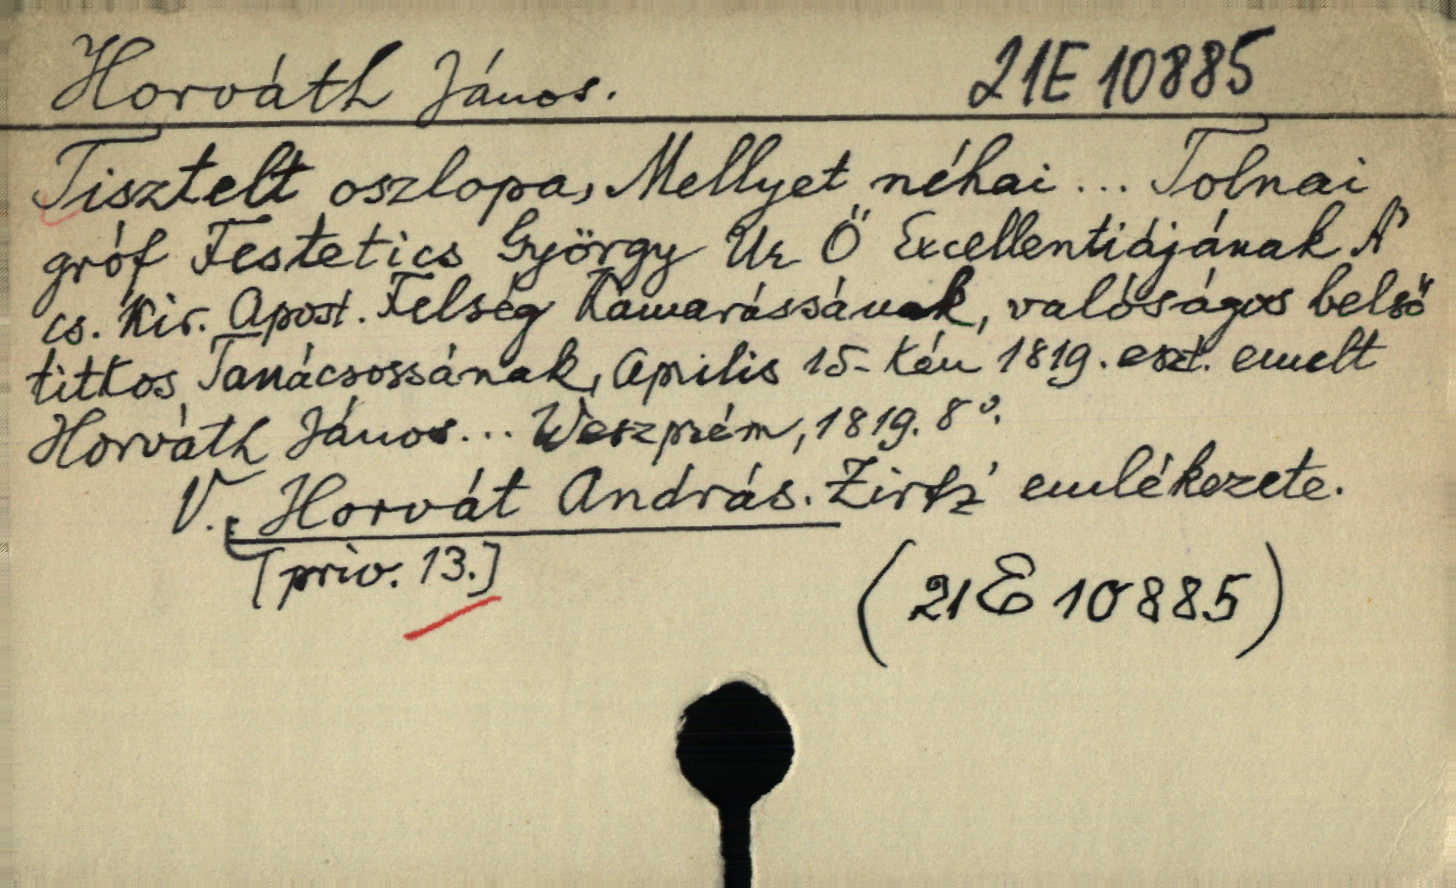 Horváth János. 21E 10885
Tisztelt oszlopa, Mellyet néhai ... Tolnai
gróf Festetics György Ur Ő Excellentiájának A'
cs. Kir. Apost. Felség Kamarássának, valóságos belső
titkos Tanácsossának, Aprilis 15-kén 1819. eszt. emelt
Horváth János... Weszprém, 1819. 8°.
V. Horvát András. Zirtz' emlékezete.
[priv. 13.]
(21E 10885)